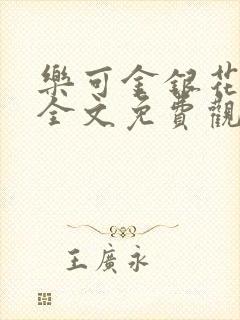 樂可金銀花
全文免費觀
王廣永